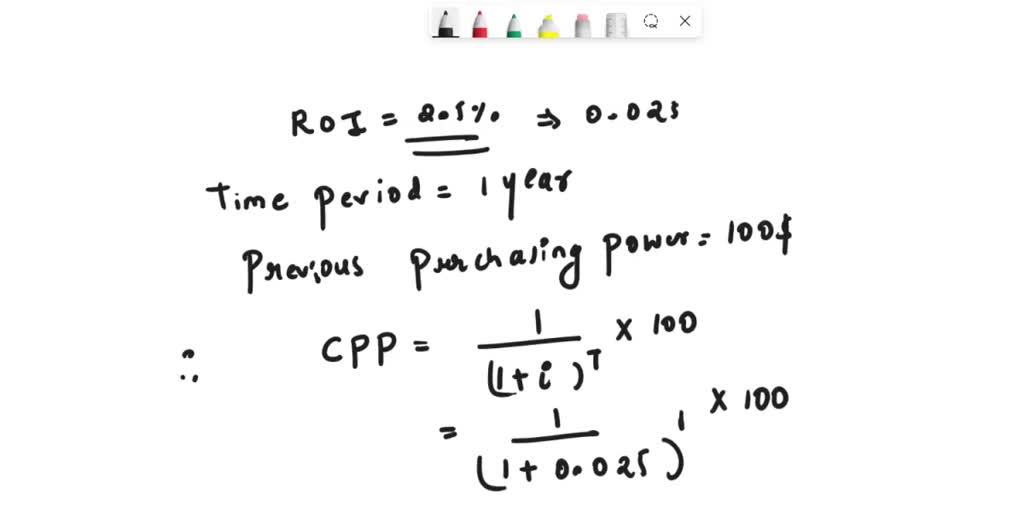 ROI = 2.5% ⇒ 0.025
Time period = 1 year
Previous purchasing power = 100$
∴ CPP = 1/(1+i)^T × 100
= 1/(1+0.025)^1 × 100